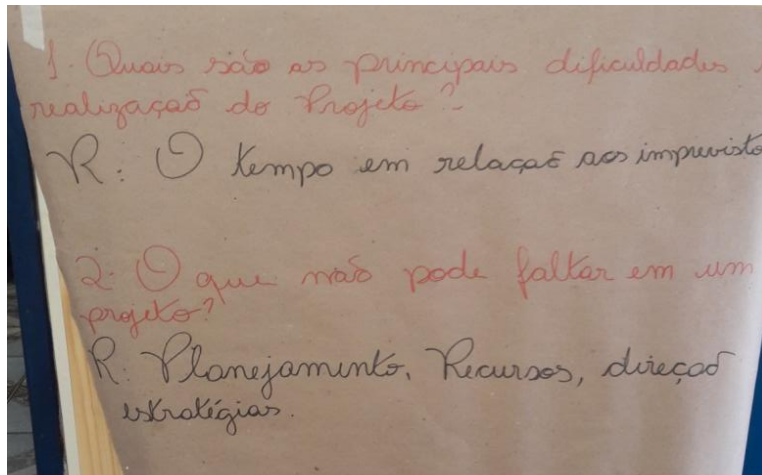 1. Quais são as principais dificuldades
realização do Projeto?
R: O tempo em relação aos imprevisto
2. O que não pode faltar em um
projeto?
R: Planejamento, Recursos, direção
estratégias.